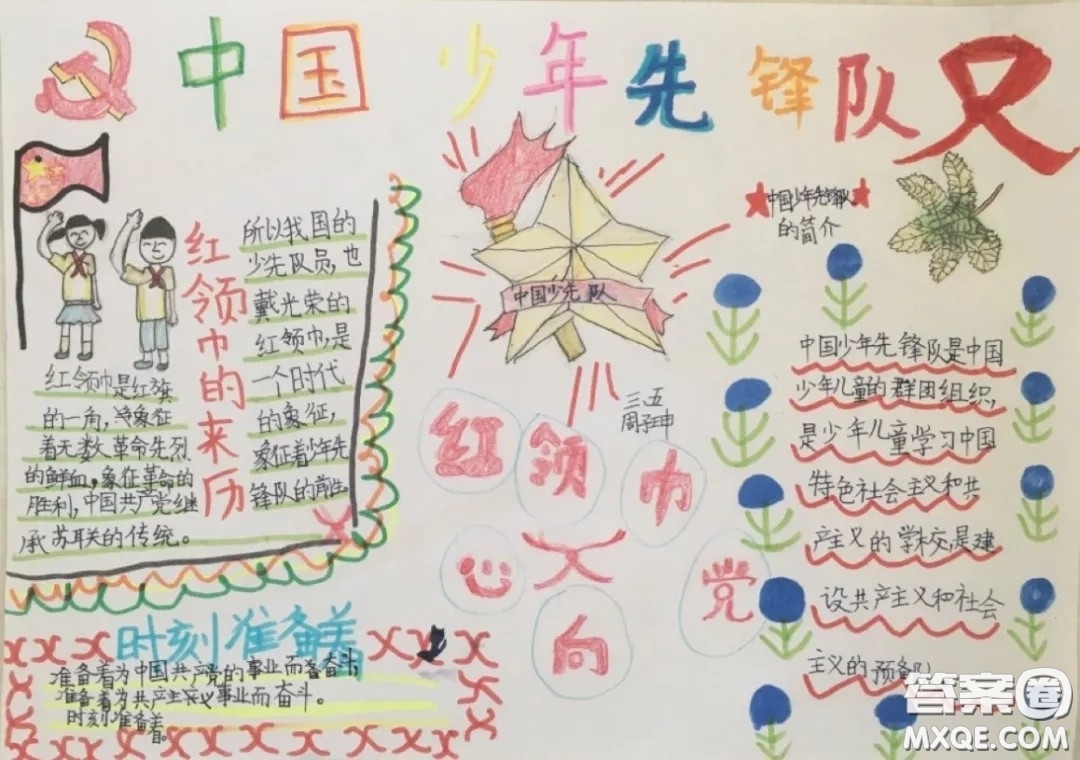 中国少年先锋队
中国少年先锋队
的简介
中国少先队
红领巾的来历
所以我国的
少先队员,也
戴光荣的
红领巾,是
一个时代
的象征,
象征着少年先
锋队的前生
红领巾是红旗
的一角,
象征
着无数革命先烈
的鲜血,象征革命的
胜利,中国共产党继
承苏联的传统。
三、五
红领巾
心向党
中国少年先锋队是中国
少年儿童的群团组织,
是少年儿童学习中国
特色社会主义和共
产主义的学校,是建
设共产主义和社会
主义的预备队
时刻准备着
准备着为中国共产党的事业而奋斗
准备着为共产主义事业而奋斗。
时刻准备着。
答案圈
MXQE.COM